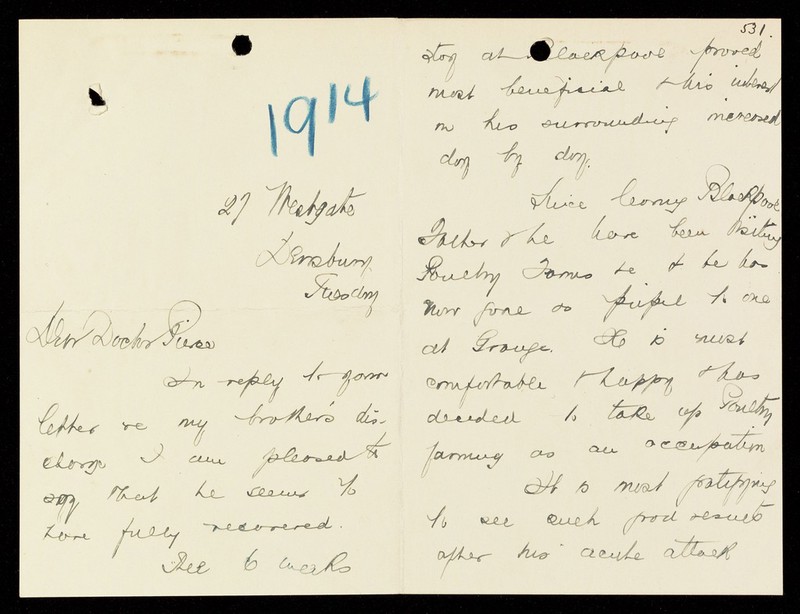 1914
27 Westgate
Dewsbury.
Tuesday
Dear Doctor Pierce
In reply to your
letter re my brother's dis-
charge I am pleased to
say that he seems to
have fully recovered.
The 6 weeks
531.
stay at Blackpool proved
most beneficial & his interest
in his surrounding increased
day by day.
Since leaving Blackpool
Father & he have been visiting
Poultry Farms & he has
now gone as pupil to one
at Grange. He is most
comfortable & happy & has
decided to take up Poultry
farming as an occupation
It is most gratifying
to see such good results
after his acute attack